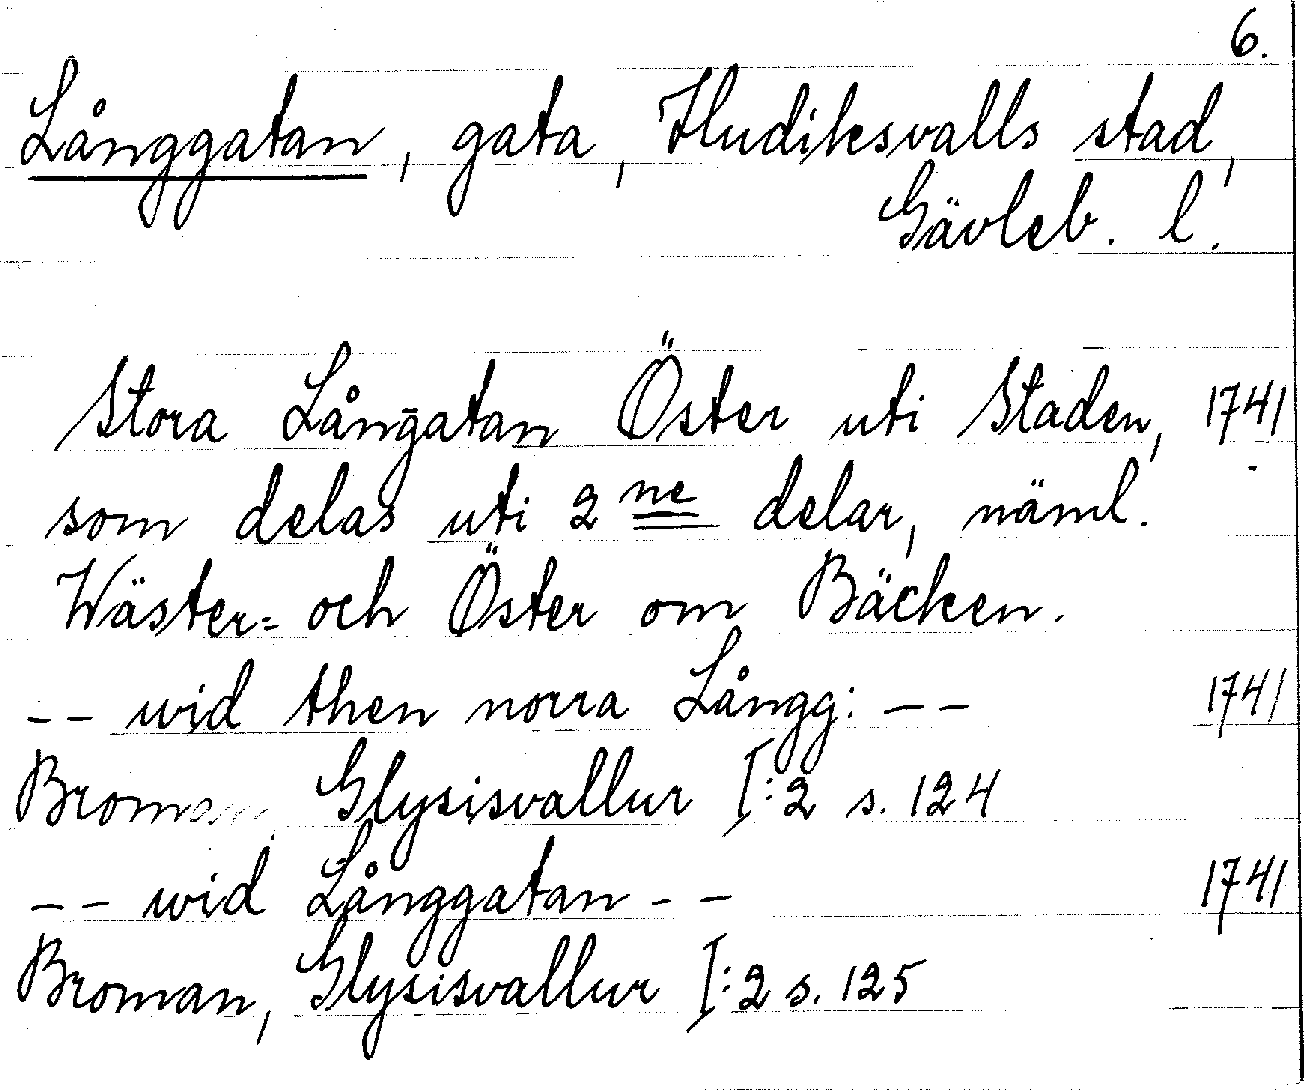 6.
Långgatan, gata, Hudiksvalls stad,
Gävleb. l.
Stora Långatan Öster uti Staden, 1741
som delas uti 2 ne delar, näml.
Wäster= och Öster om Bäcken.
-- wid then norra Långg: -- 1741
Broman, Glysisvallur I:2 s. 124
-- wid Långgatan -- 1741
Broman, Glysisvallur I:2 s. 125